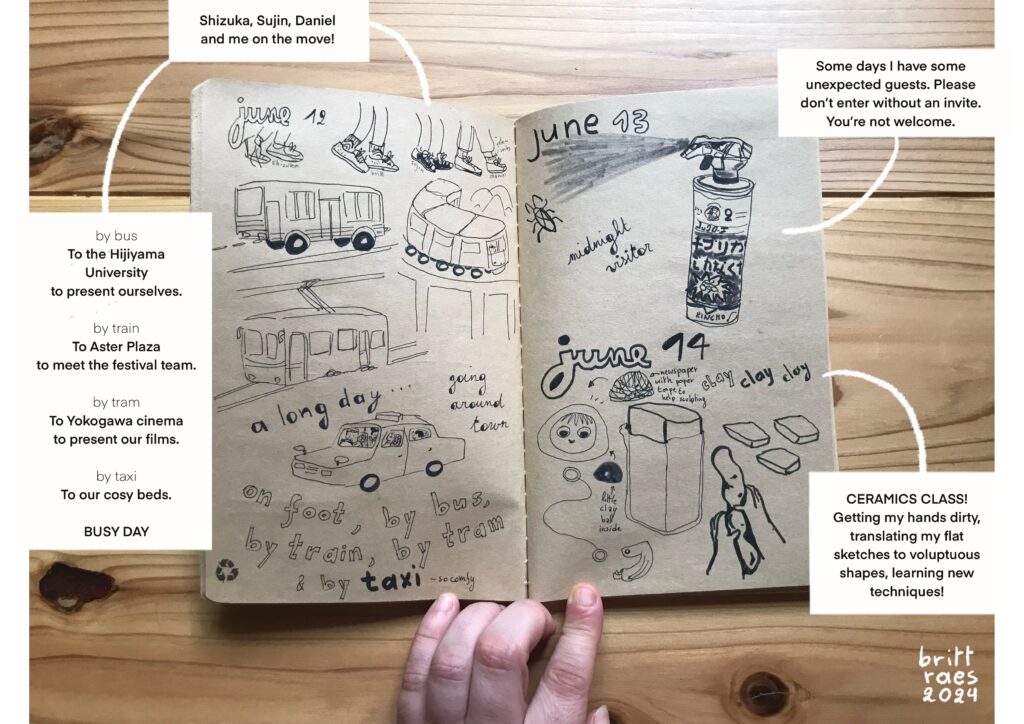 Shizuka, Sujin, Daniel
and me on the move!
Some days I have some
unexpected guests. Please
don't enter without an invite.
You're not welcome.
by bus
To the Hijiyama
University
to present ourselves.
by train
To Aster Plaza
to meet the festival team.
by tram
To Yokogawa cinema
to present our films.
by taxi
To our cosy beds.
BUSY DAY
june 12
shizuka
britt
sujin
daniel
a long day....
going
around
town
on foot, by bus,
by train, by tram
& by taxi - so comfy
june 13
midnight
visitor
KINCHO
june 14
newspaper
with paper
tape to
help sculpting
clay clay clay
little
clay
ball
inside
CERAMICS CLASS!
Getting my hands dirty,
translating my flat
sketches to voluptuous
shapes, learning new
techniques!
britt
raes
2024